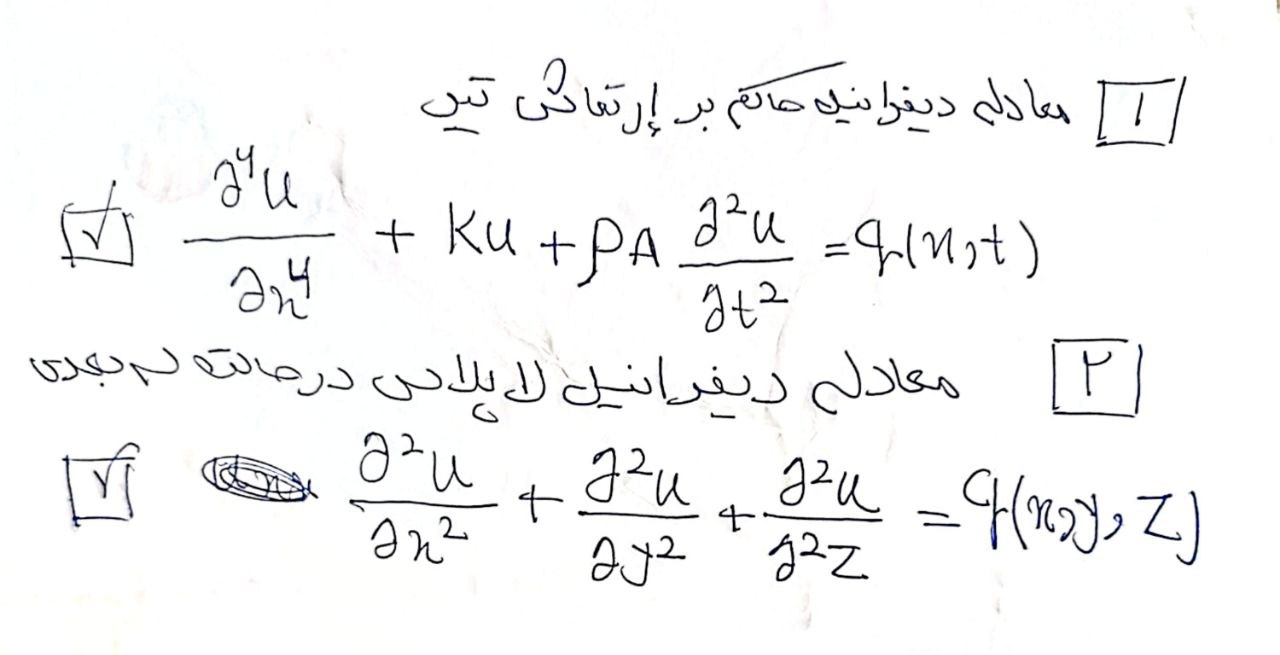 ۱ معادله دیفرانیل حاکم بر إرتعاش تیر
∂⁴u/∂x⁴ + Ku + ρA ∂²u/∂t² = q(x,t)
۲ معادله دیفرانسیل لاپلاس در حالت سه بعدی
∂²u/∂x² + ∂²u/∂y² + ∂²u/∂²z = q(x,y,z)